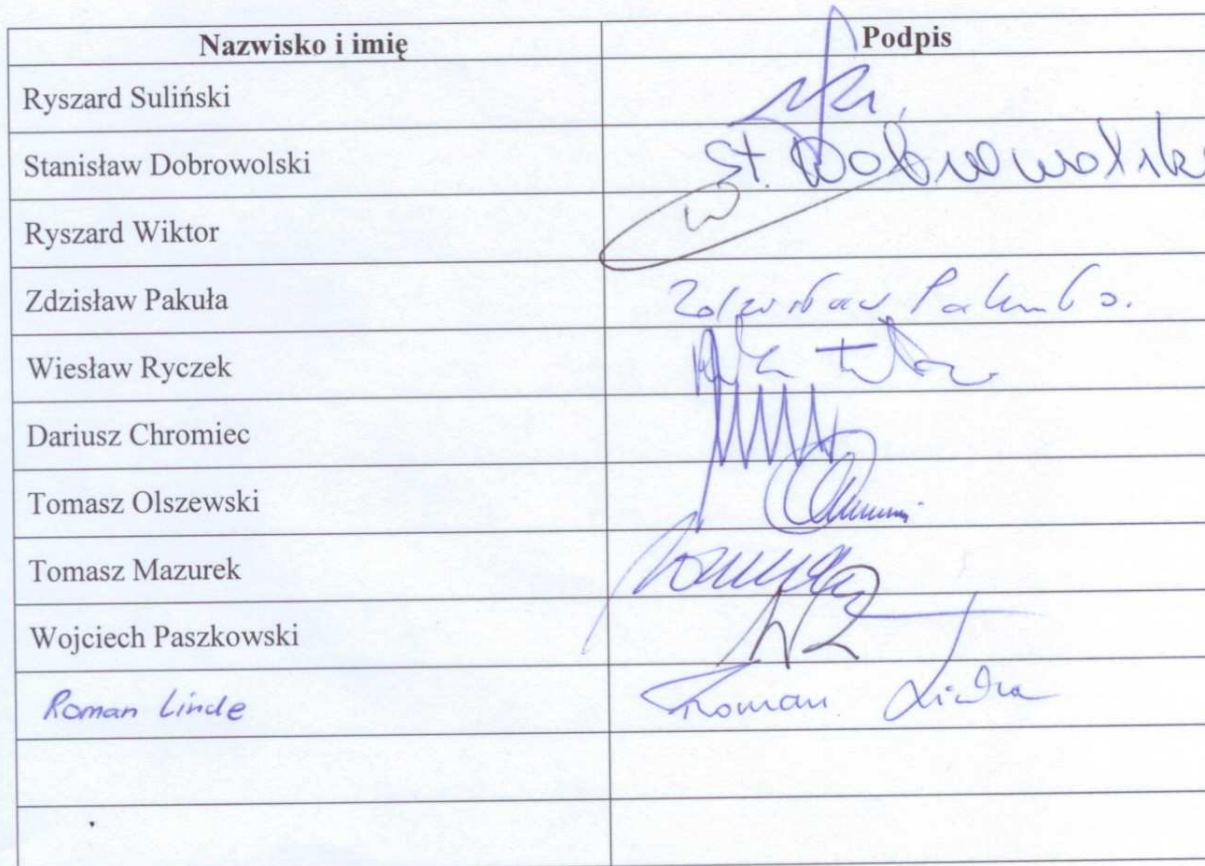 Nazwisko i imię Podpis
Ryszard Suliński
Stanisław Dobrowolski St. Dobrowolski
Ryszard Wiktor W
Zdzisław Pakuła Zdzisław Pakuła
Wiesław Ryczek
Dariusz Chromiec
Tomasz Olszewski
Tomasz Mazurek
Wojciech Paszkowski
Roman Linde Roman Linde